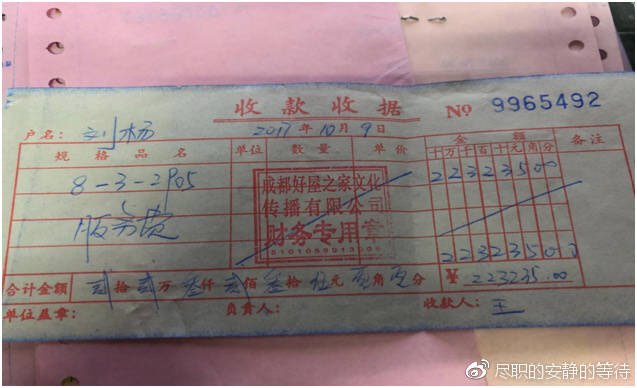 收款收据 № 9965492
户名：刘杨 2017年10月9日
规格品名 单位 数量 单价 金额 备注
十万千百十元角分
8-3-2905 22323500
服务费
成都好屋之家文化
传播有限公司
财务专用章
5101059913006
22323500
合计金额 贰拾贰万叁仟贰佰叁拾伍元零角零分 ¥223235.00
单位盖章： 负责人： 收款人：王
尽职的安静的等待